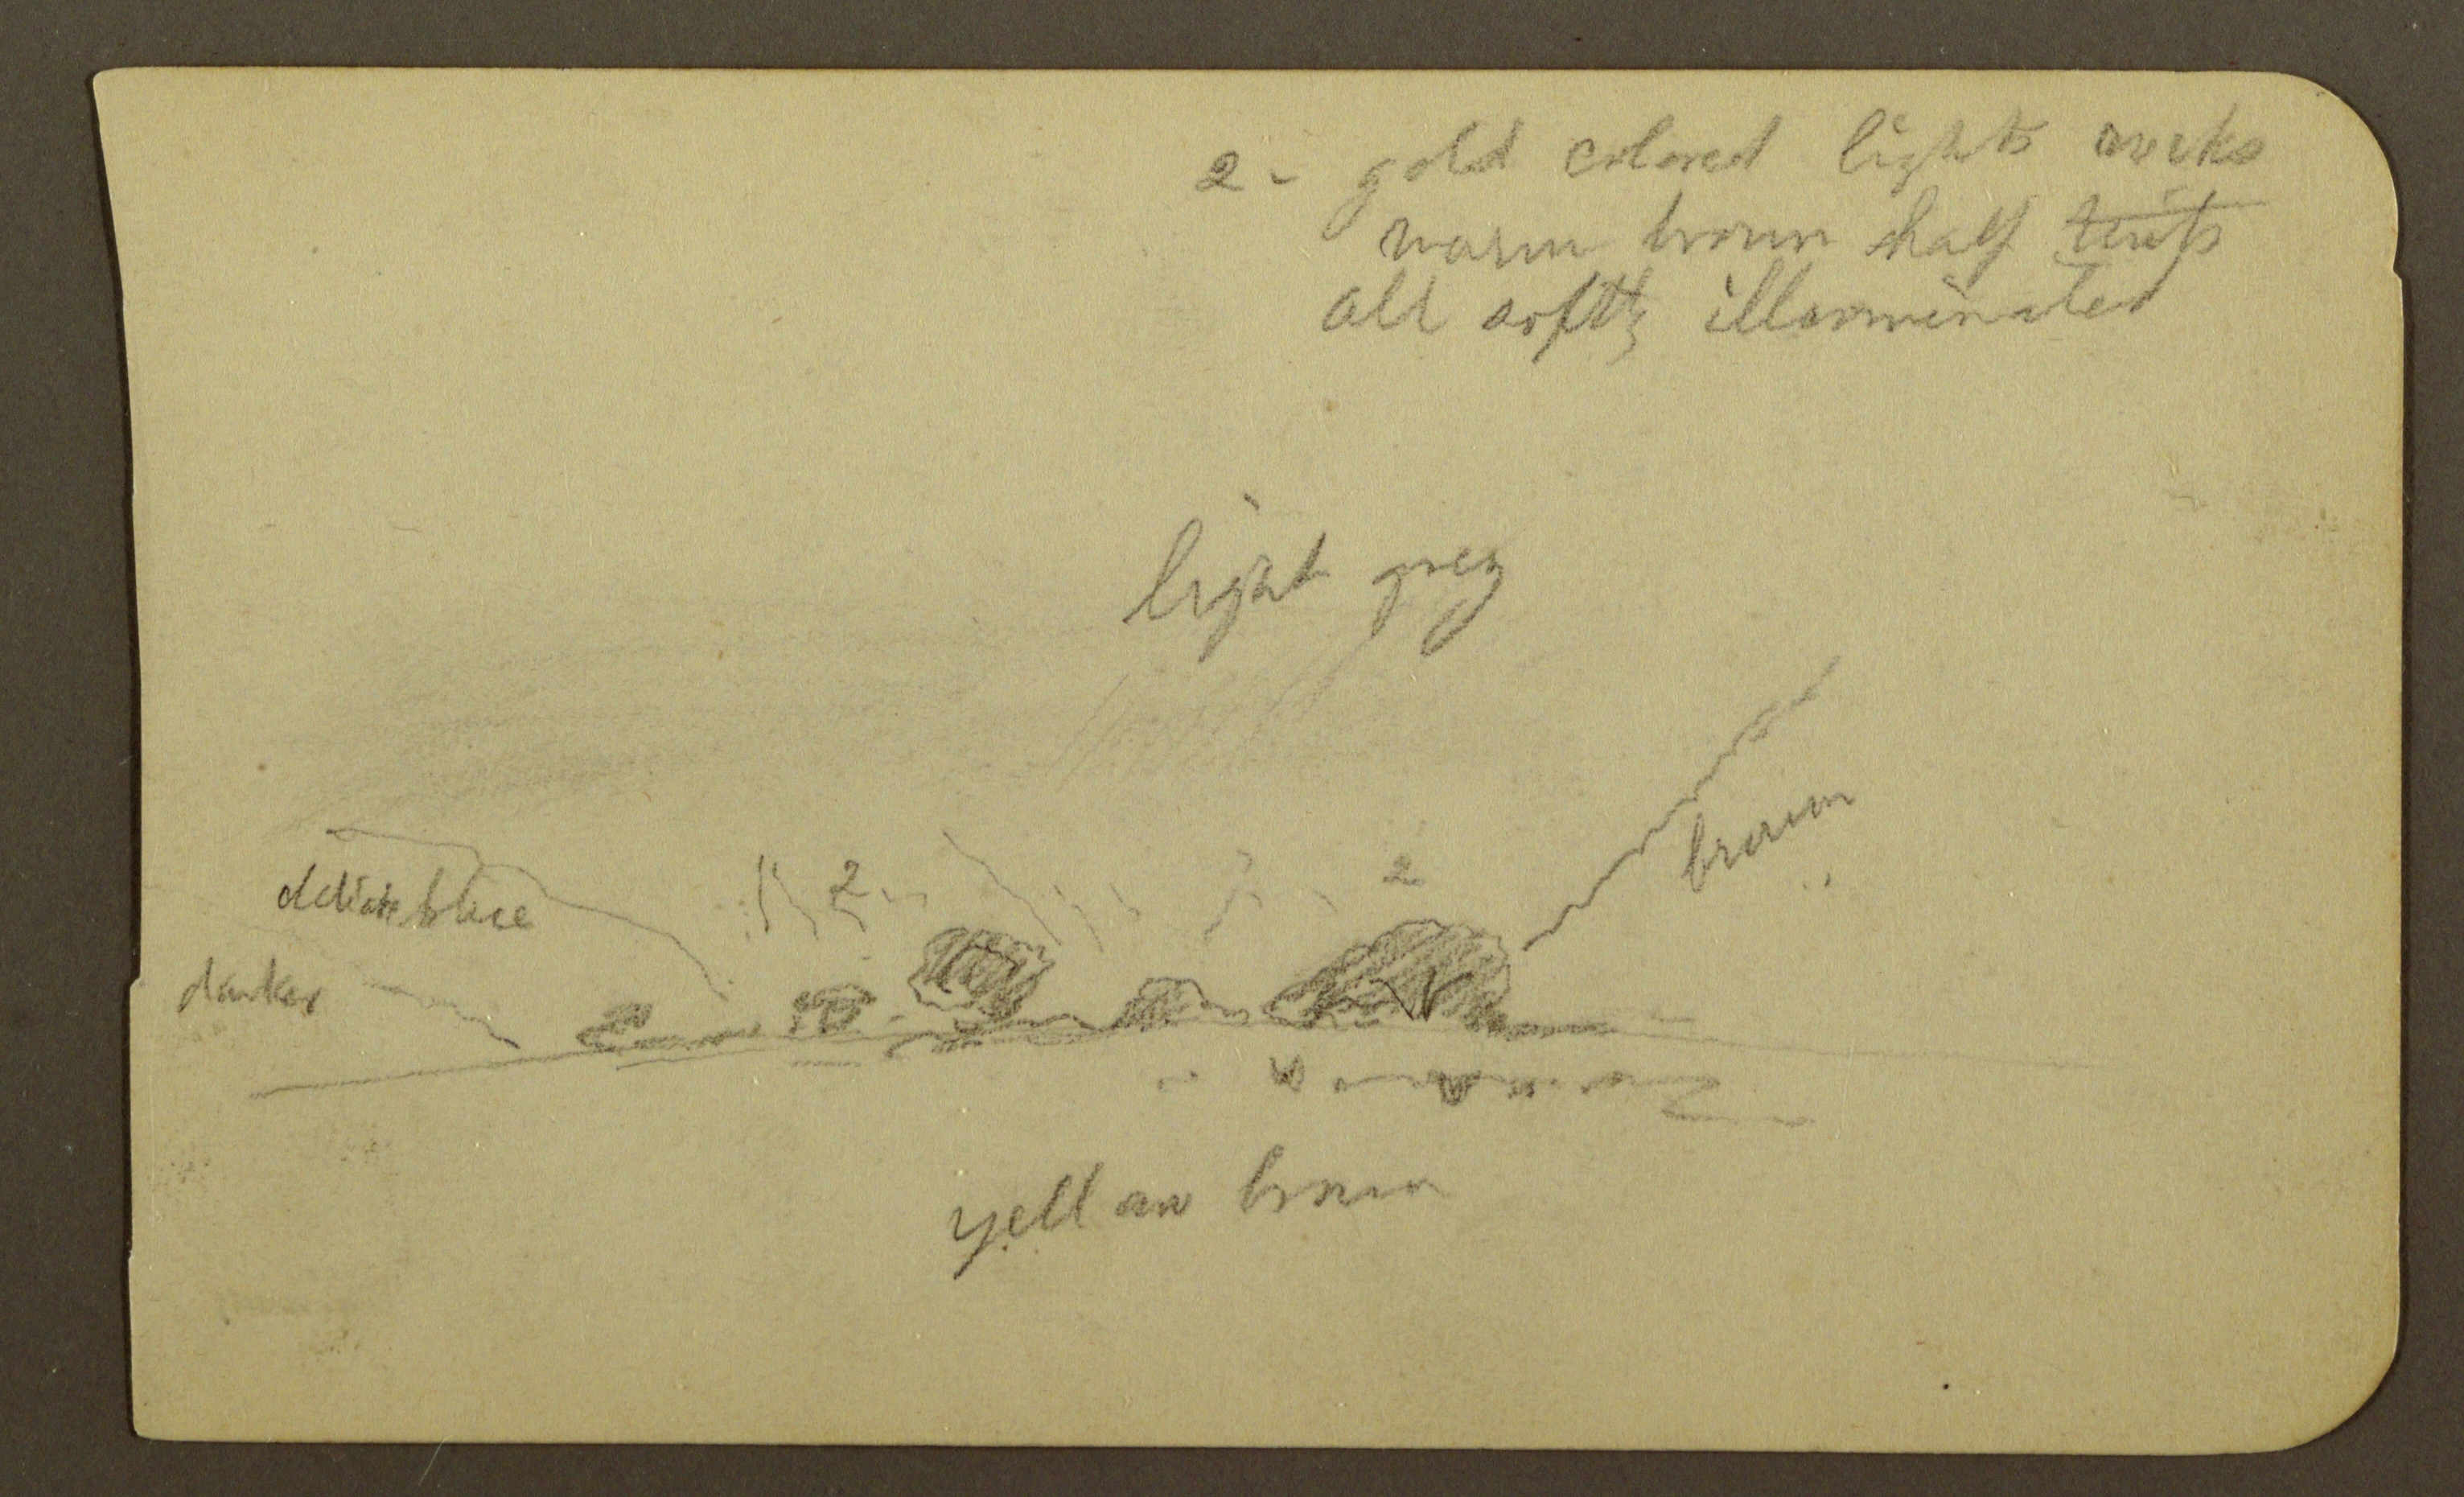 2 - gold colored lights rocks
warm brown half tints
all softly illuminated
light grey
brown
2
2
delicate blue
darker
yellow brown